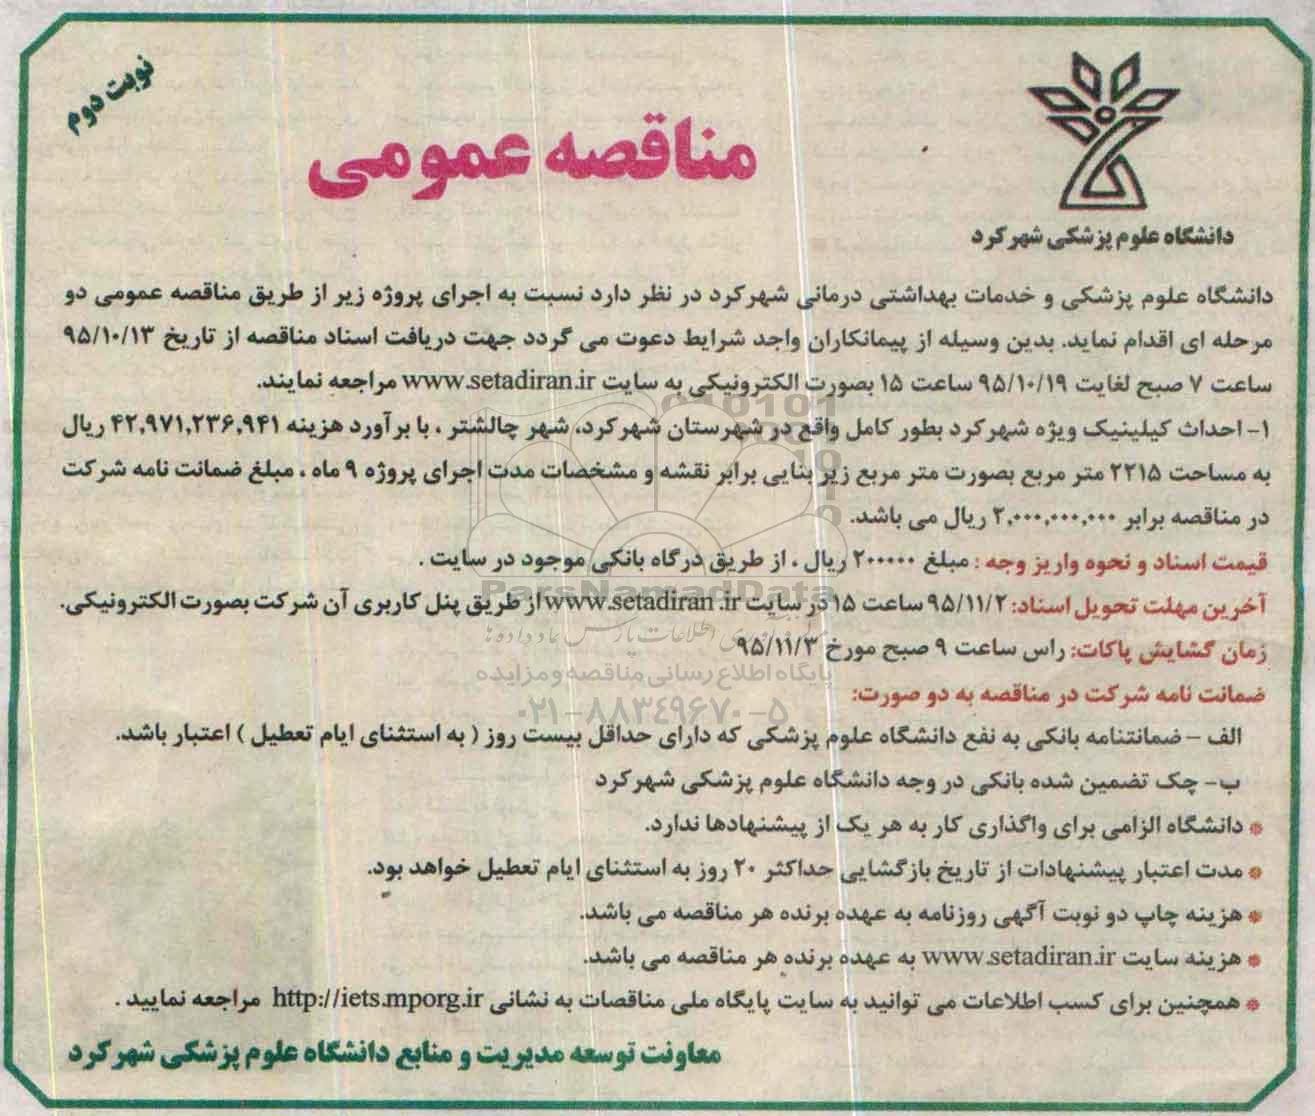 نوبت دوم
مناقصه عمومی
دانشگاه علوم پزشکی شهرکرد
دانشگاه علوم پزشکی و خدمات بهداشتی درمانی شهرکرد در نظر دارد نسبت به اجرای پروژه زیر از طریق مناقصه عمومی دو
مرحله ای اقدام نماید. بدین وسیله از پیمانکاران واجد شرایط دعوت می گردد جهت دریافت اسناد مناقصه از تاریخ ۹۵/۱۰/۱۳
ساعت ۷ صبح لغایت ۹۵/۱۰/۱۹ ساعت ۱۵ بصورت الکترونیکی به سایت www.setadiran.ir مراجعه نمایند.
۱- احداث کیلینیک ویژه شهرکرد بطور کامل واقع در شهرستان شهرکرد، شهر چالشتر ، با برآورد هزینه ۴۲,۹۷۱,۲۳۶,۹۴۱ ریال
به مساحت ۲۲۱۵ متر مربع بصورت متر مربع زیر بنایی برابر نقشه و مشخصات مدت اجرای پروژه ۹ ماه ، مبلغ ضمانت نامه شرکت
در مناقصه برابر ۲,۰۰۰,۰۰۰,۰۰۰ ریال می باشد.
قیمت اسناد و نحوه واریز وجه : مبلغ ۲۰۰۰۰۰ ریال ، از طریق درگاه بانکی موجود در سایت .
آخرین مهلت تحویل اسناد: ۹۵/۱۱/۲ ساعت ۱۵ در سایت www.setadiran.ir از طریق پنل کاربری آن شرکت بصورت الکترونیکی.
زمان گشایش پاکات: راس ساعت ۹ صبح مورخ ۹۵/۱۱/۳
ضمانت نامه شرکت در مناقصه به دو صورت:
الف – ضمانتنامه بانکی به نفع دانشگاه علوم پزشکی که دارای حداقل بیست روز ( به استثنای ایام تعطیل ) اعتبار باشد.
ب- چک تضمین شده بانکی در وجه دانشگاه علوم پزشکی شهرکرد
* دانشگاه الزامی برای واگذاری کار به هر یک از پیشنهادها ندارد.
* مدت اعتبار پیشنهادات از تاریخ بازگشایی حداکثر ۲۰ روز به استثنای ایام تعطیل خواهد بود.
* هزینه چاپ دو نوبت آگهی روزنامه به عهده برنده هر مناقصه می باشد.
* هزینه سایت www.setadiran.ir به عهده برنده هر مناقصه می باشد.
* همچنین برای کسب اطلاعات می توانید به سایت پایگاه ملی مناقصات به نشانی http://iets.mporg.ir مراجعه نمایید .
معاونت توسعه مدیریت و منابع دانشگاه علوم پزشکی شهرکرد
ParsNamadData
پایگاه اطلاع رسانی مناقصه و مزایده
۰۲۱-۸۸۳۴۹۶۷۰-۵